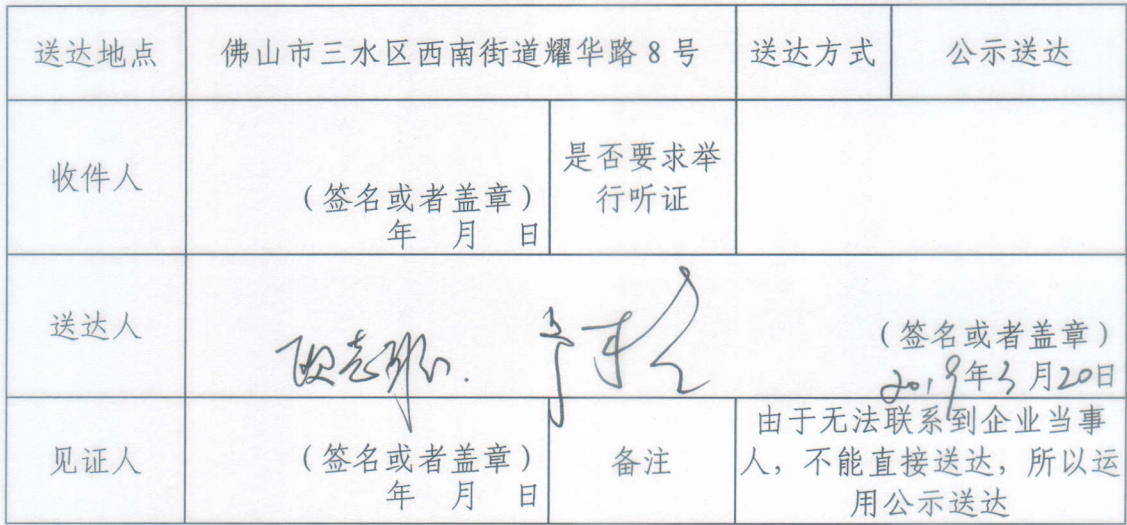 送达地点 佛山市三水区西南街道耀华路8号 送达方式 公示送达
收件人
（签名或者盖章）
年 月 日
是否要求举
行听证
送达人
（签名或者盖章）
2019年3月20日
见证人
（签名或者盖章）
年 月 日
备注
由于无法联系到企业当事
人，不能直接送达，所以运
用公示送达